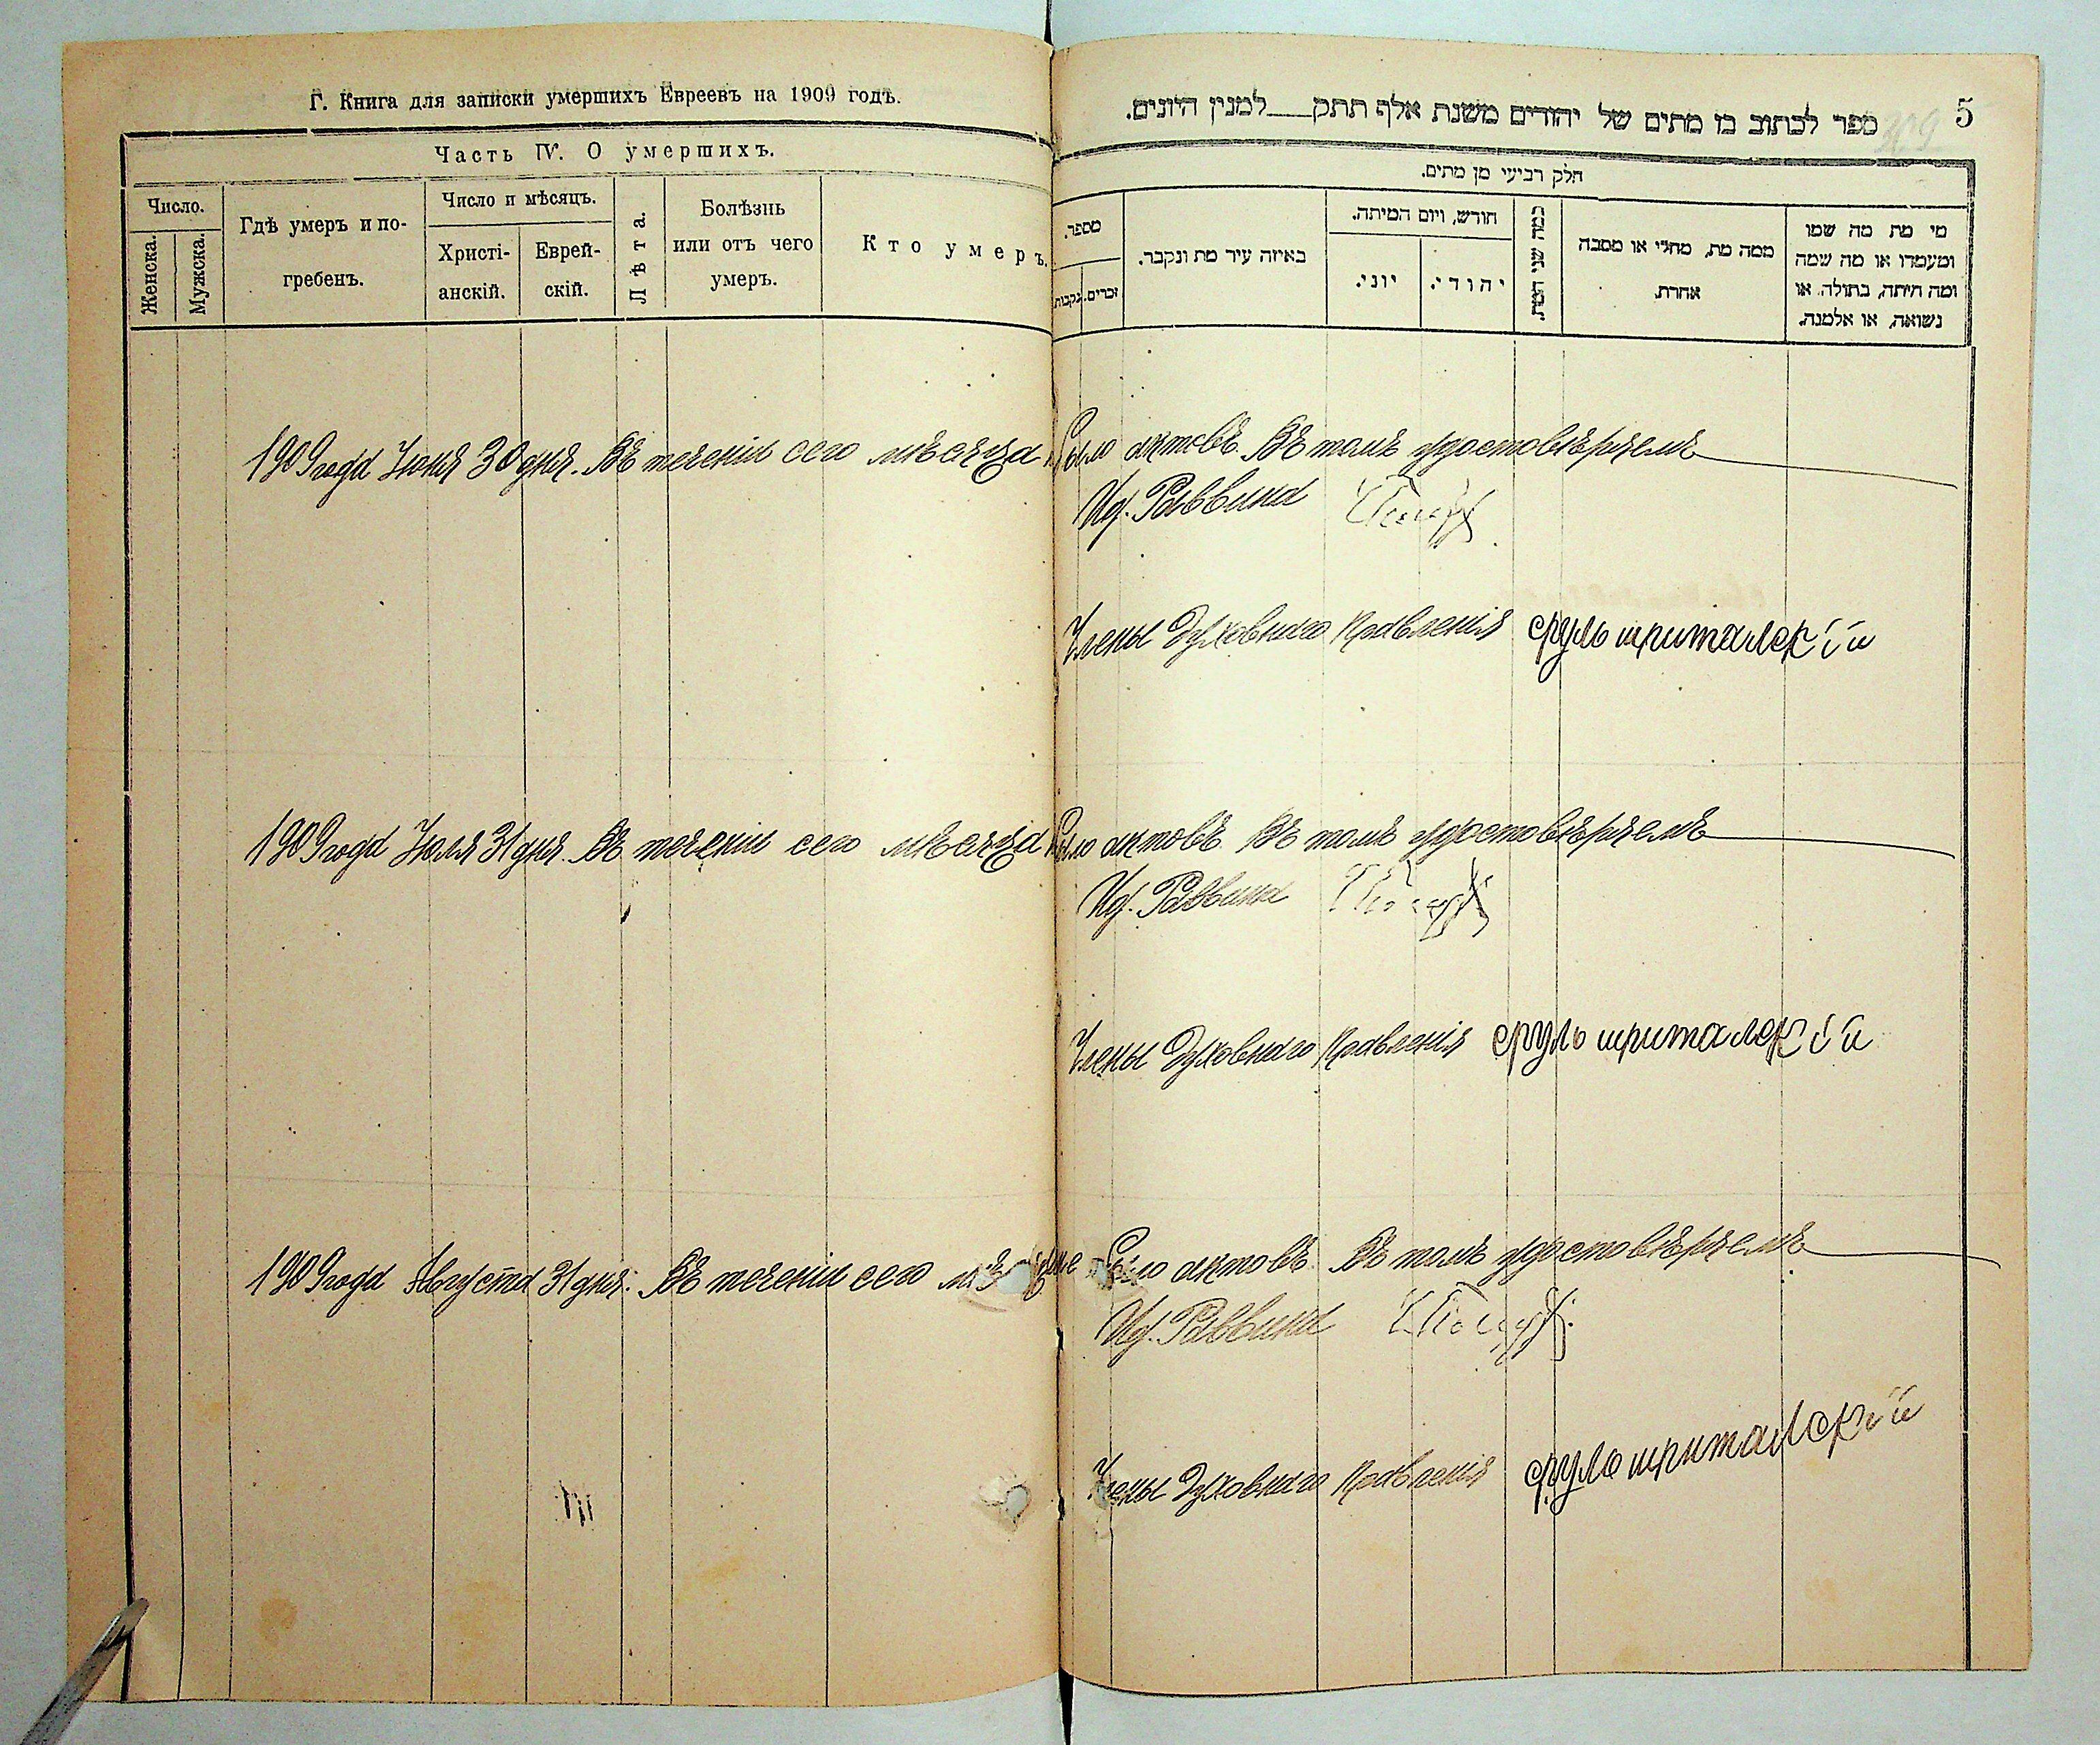 Г. Книга для записки умершихъ Евреевъ на 1909 годъ.
Часть IV. О умершихъ.
Число.
Женска.
Мужска.
Гдѣ умеръ и по-
гребенъ.
Число и мѣсяцъ.
Христі-
анскій.
Еврей-
скій.
Лѣта.
Болѣзнь
или отъ чего
умеръ.
Кто умеръ.
5
ספר לכתוב בו מתים של יהודים משנת אלף תתק למנין היונים.
חלק רביעי מן מתים.
מספר.
זכרים.
נקבות.
באיזה עיר מת ונקבר.
חודש, ויום המיתה.
יוני.
יהודי.
כמה שני המת.
ממה מת, מחלי או מסבה
אחרת.
מי מת מה שמו
ומעמדו או מה שמה
ומה היתה, בתולה או
נשואה, או אלמנה.
1909 года Іюня 30 дня. Въ теченіи сего мѣсяца было актовъ. Въ томъ удостовѣряемъ
И.д. Раввина
Члены Духовнаго Правленія сруль шриталскій
1909 года Іюля 31 дня. Въ теченіи сего мѣсяца было актовъ. Въ томъ удостовѣряемъ
И.д. Раввина
Члены Духовнаго Правленія сруль шриталскій
1909 года Августа 31 дня. Въ теченіи сего было актовъ. Въ томъ удостовѣряемъ
И.д. Раввина
Члены Духовнаго Правленія сруль шриталскій